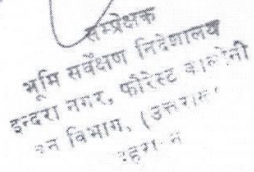 सम्प्रेक्षक
भूमि सर्वेक्षण निदेशालय
इन्दरा नगर, फौरेस्ट कालोनी
वन विभाग, (उत्तरा